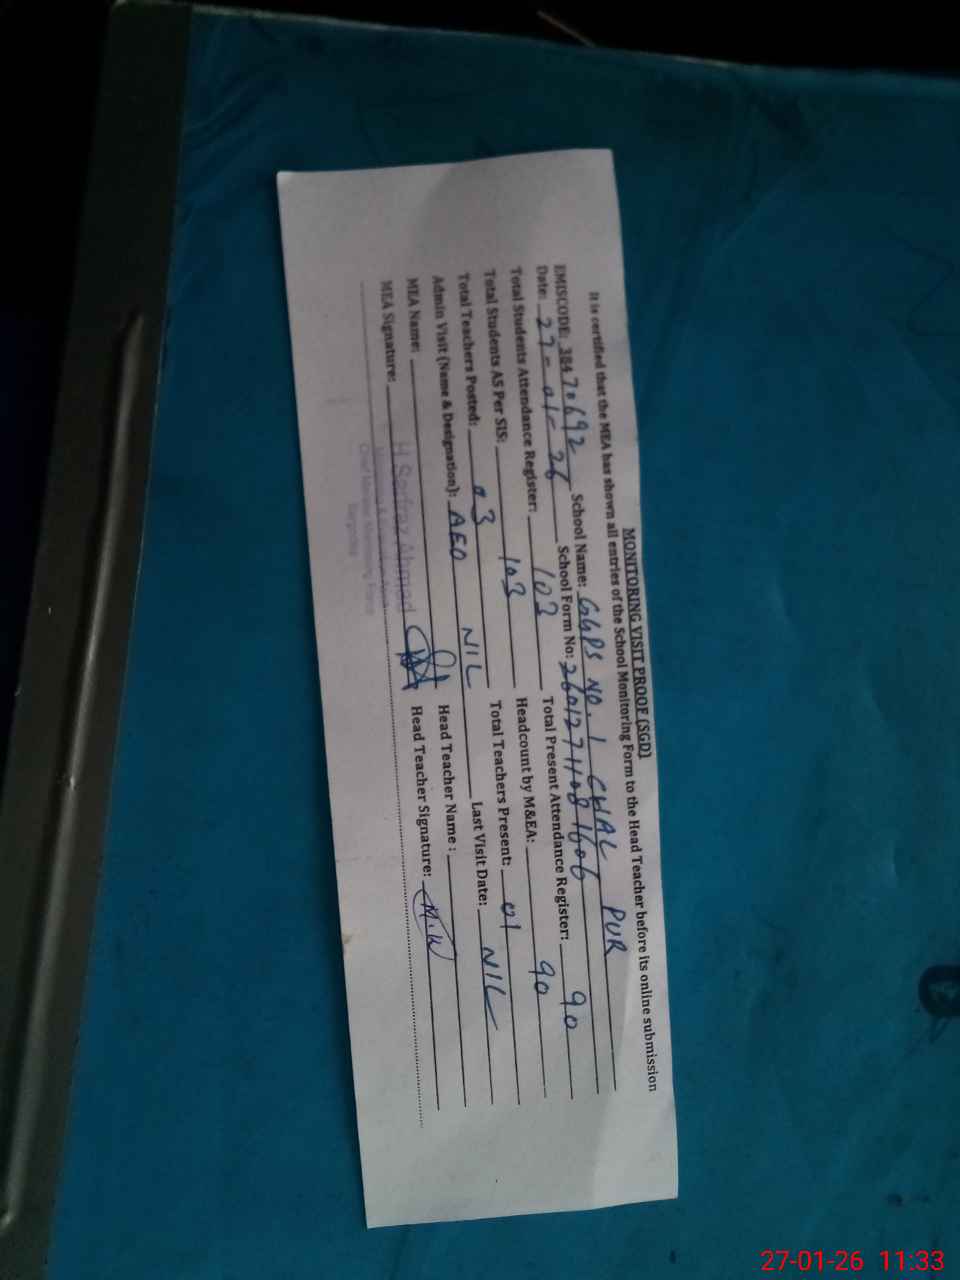 MONITORING VISIT PROOF (SGD)
It is certified that the MEA has shown all entries of the School Monitoring Form to the Head Teacher before its online submission
EMISCODE: 38470692 School Name: GGPS NO. 1 CHAL PUR
Date: 27-01-26 School Form No: 26012711081606
Total Students Attendance Register: 103 Total Present Attendance Register: 90
Total Students AS Per SIS: 103 Headcount by M&EA: 90
Total Teachers Posted: 03 Total Teachers Present: 01
Admin Visit (Name & Designation): AEO NIL Last Visit Date: NIL
MEA Name: Head Teacher Name :
MEA Signature: H Sarfraz Ahmad Head Teacher Signature: M.W
Chief Minister Monitoring Force
Sargodha
27-01-26 11:33